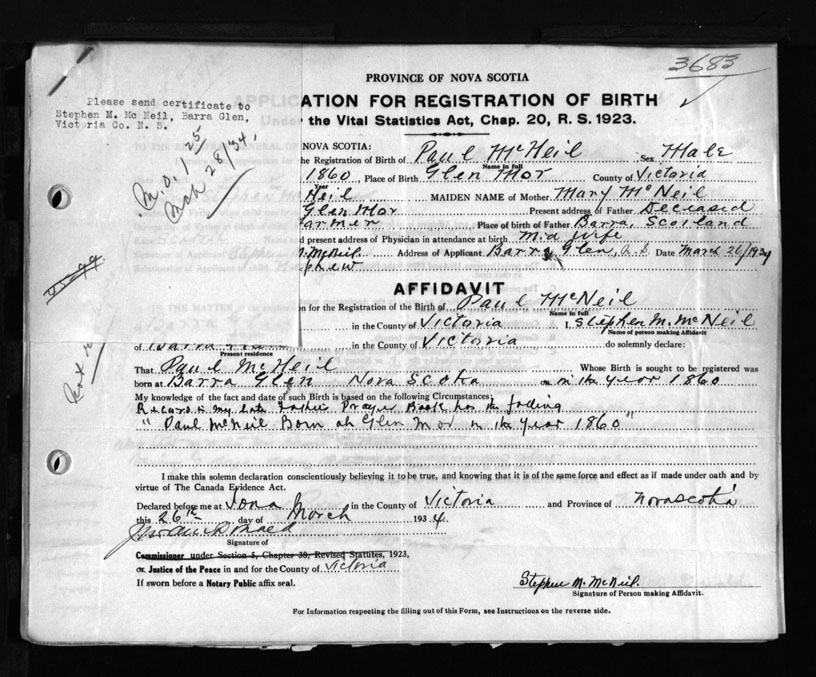 3683
PROVINCE OF NOVA SCOTIA
Please send certificate to
Stephen M. Mc Neil, Barra Glen,
Victoria Co. N. S.
ATION FOR REGISTRATION OF BIRTH
the Vital Statistics Act, Chap. 20, R. S. 1923.
M.O. 1.25
Mch 28/34,
NOVA SCOTIA:
the Registration of Birth of Paul McNeil Sex Male
Name in full
1860, Place of Birth Glen Mor County of Victoria
Year
Neil MAIDEN NAME of Mother Mary McNeil
Glen Mor Present address of Father Deceased
armer Place of birth of Father Barra, Scotland
d present address of Physician in attendance at birth Mid wife
M. McNeil. Address of Applicant Barra Glen, N.S Date March 26/1934
phew
AFFIDAVIT
on for the Registration of the Birth of Paul McNeil
Name in full
in the County of Victoria I, Stephen M. McNeil
Name of person making Affidavit
of Barra Glen in the County of Victoria do solemnly declare:
Present residence
That Paul McNeil Whose Birth is sought to be registered was
born at Barra Glen Nova Scotia on in the year 1860
My knowledge of the fact and date of such Birth is based on the following Circumstances:
Record in my late Father's Prayer Book has the
" Paul McNeil Born at Glen Mor in the Year 1860 "
I make this solemn declaration conscientiously believing it to be true, and knowing that it is of the same force and effect as if made under oath and by
virtue of The Canada Evidence Act.
Declared before me at Iona in the County of Victoria and Province of Nova Scotia
this 26th day of March 1934.
Signature of
Commissioner under Section 5, Chapter 38, Revised Statutes, 1923,
or Justice of the Peace in and for the County of Victoria
If sworn before a Notary Public affix seal.
Stephen M. McNeil.
Signature of Person making Affidavit.
For Information respecting the filling out of this Form, see Instructions on the reverse side.